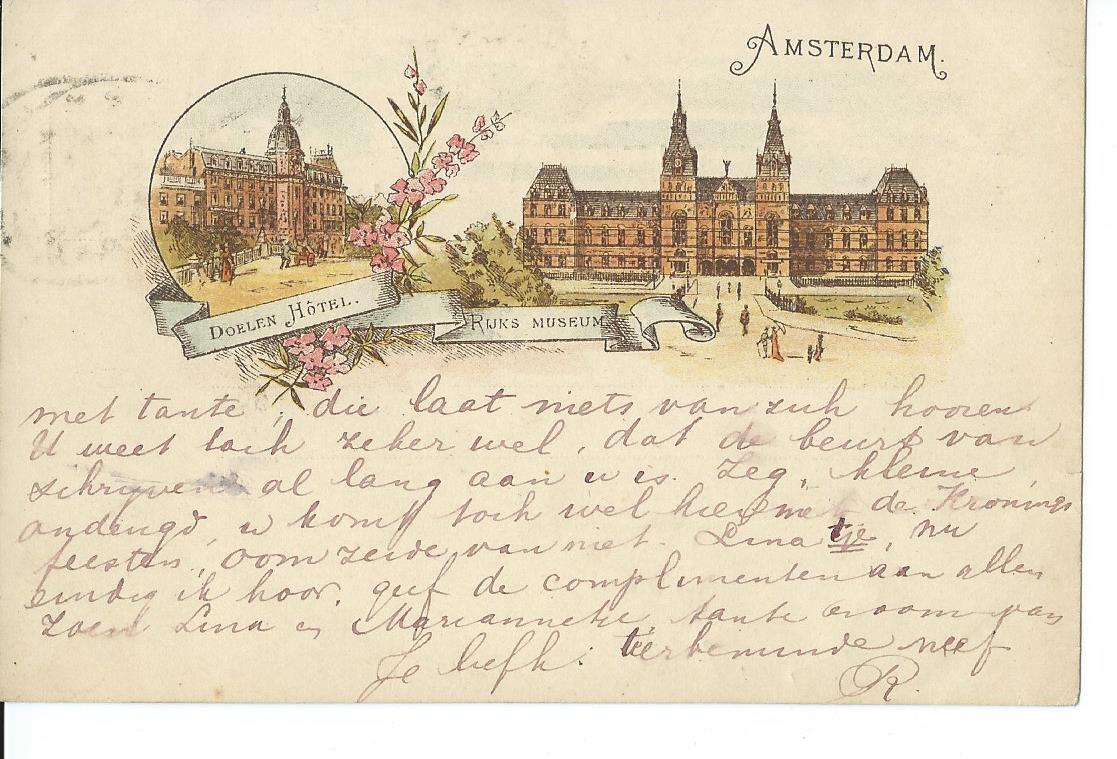 AMSTERDAM.
DOELEN HÔTEL.
RIJKS MUSEUM
met tante, die laat niets van zich hooren
U weet toch zeker wel, dat de beurt van
schrijven al lang aan u is. Zeg, kleine
ondeugd, u komt toch wel hier met de Kronings
feesten, oom zeide van niet. Linatje, nu
eindig ik hoor, geef de complimenten aan allen
zoen Lina en Marianneke, tante en oom van
Je liefh: teerbeminde neef
R.